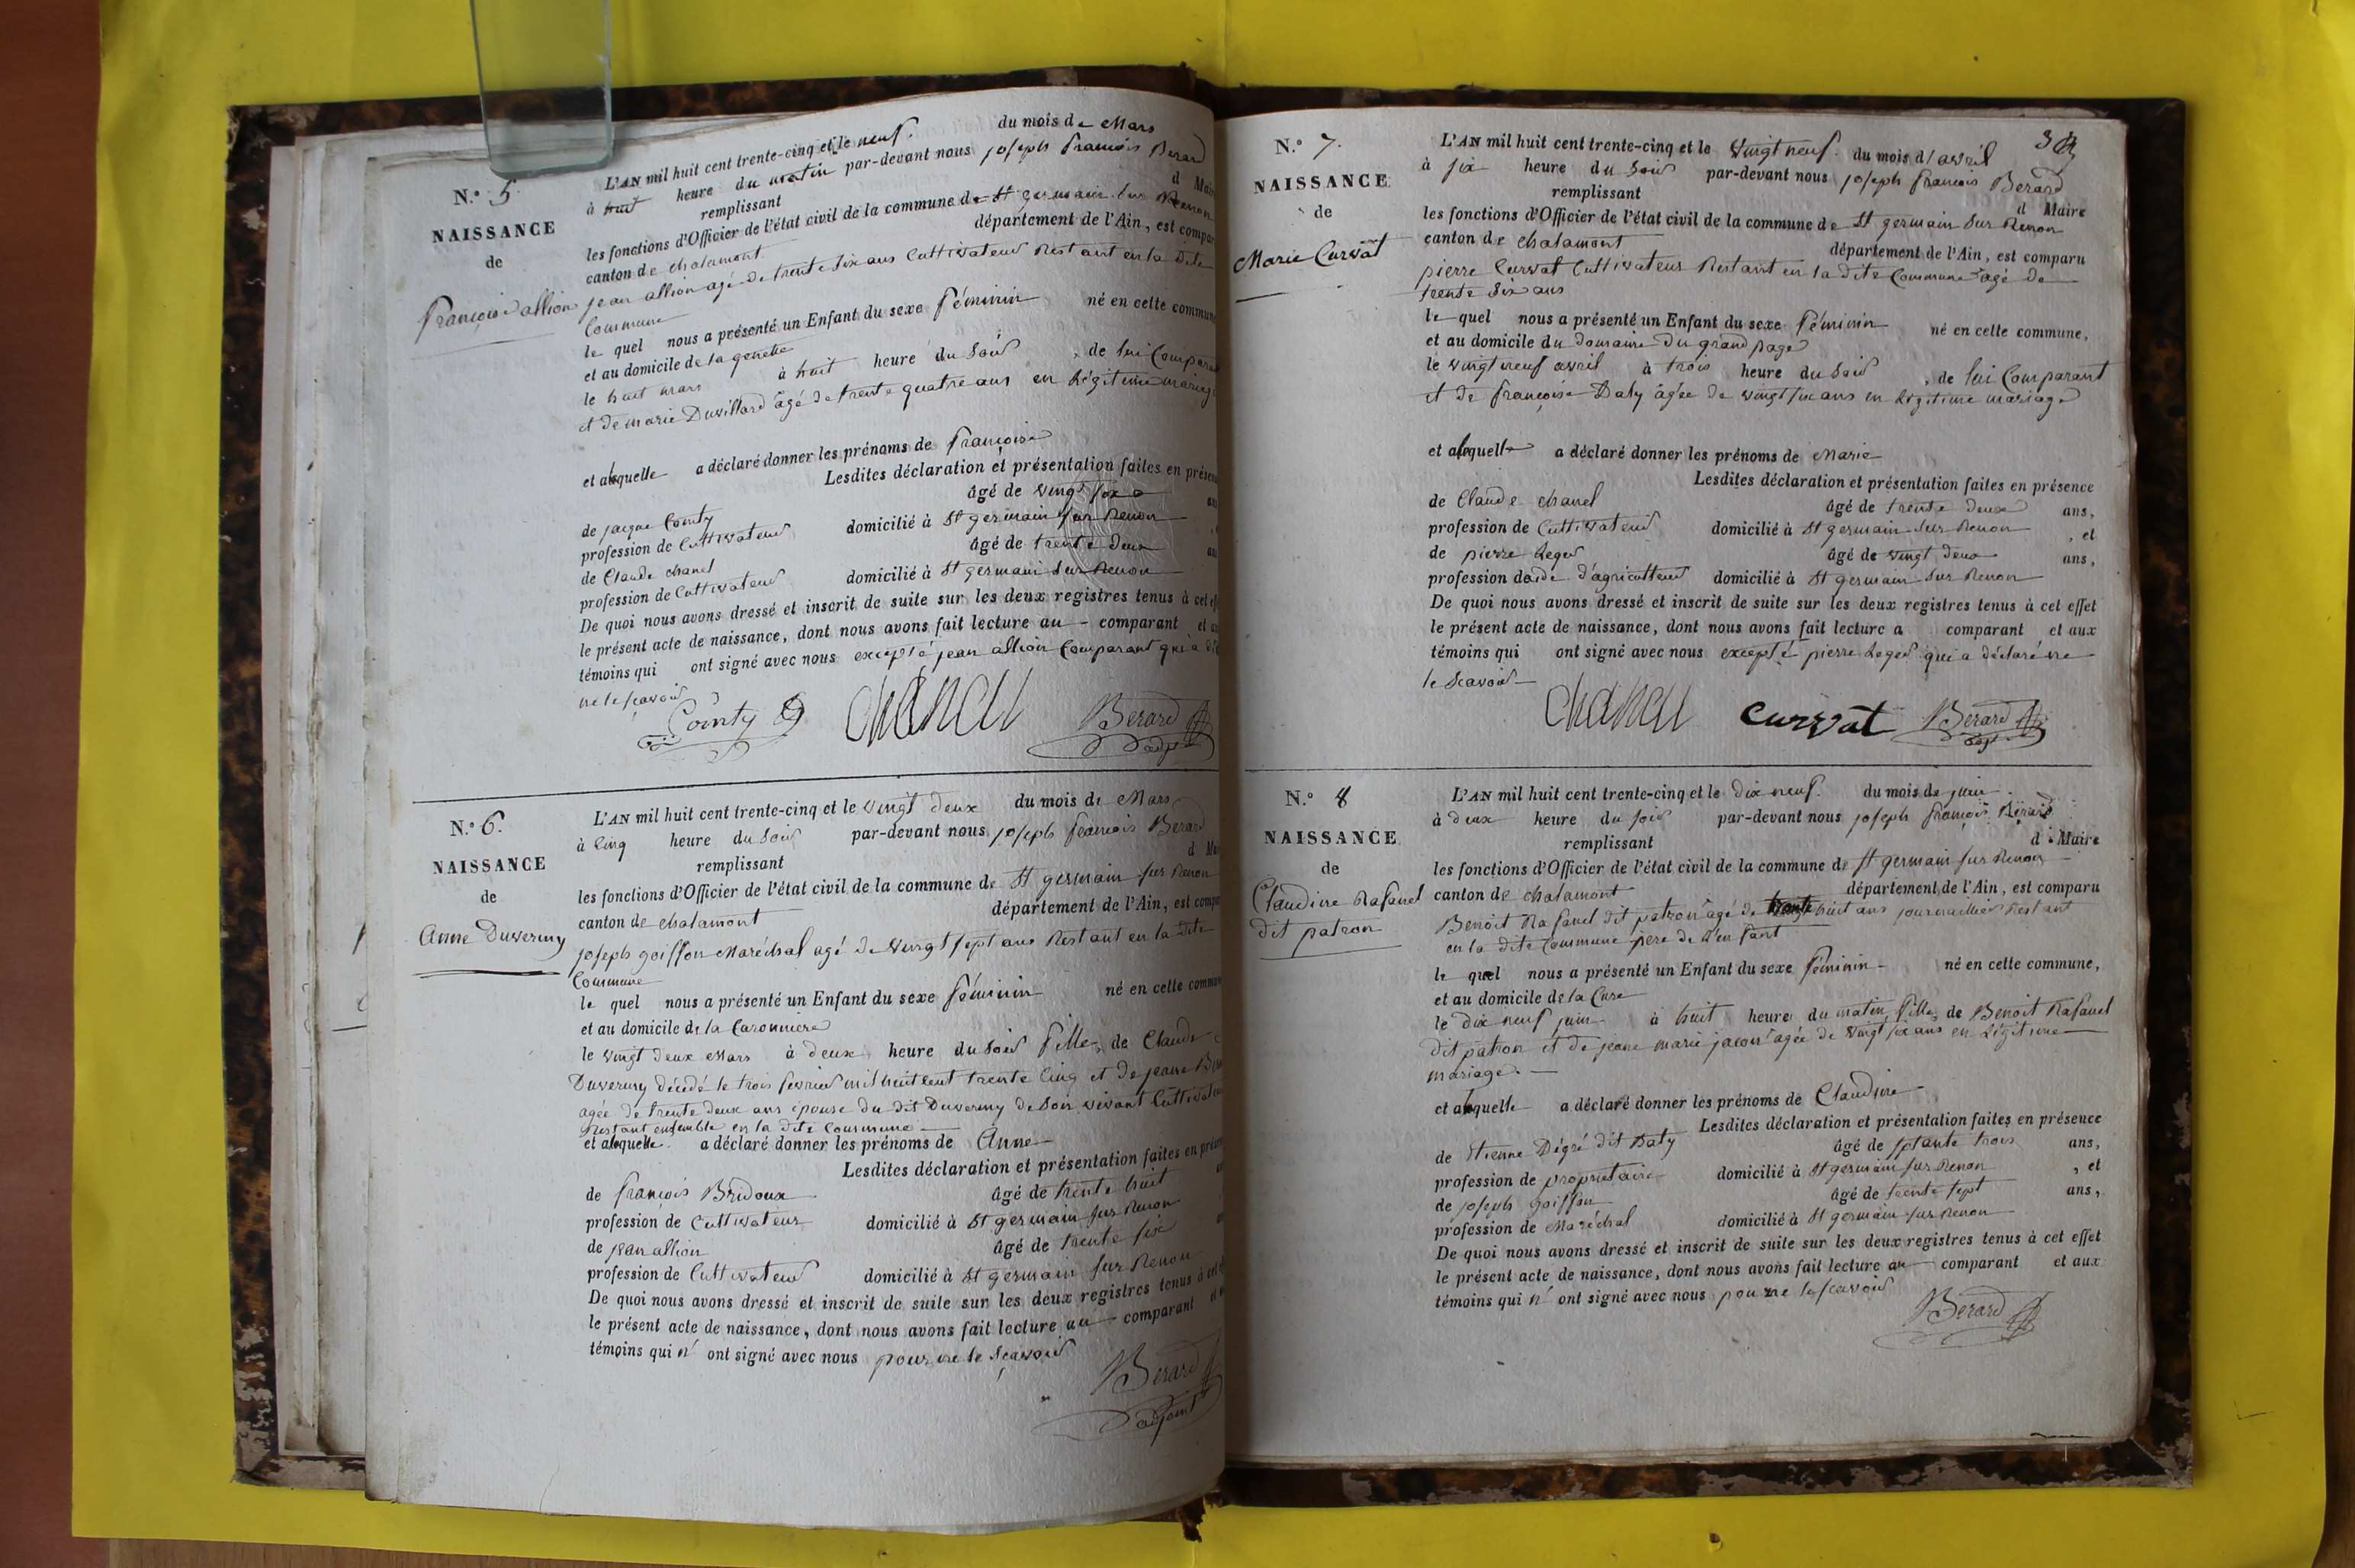 N.° 5
NAISSANCE
de
françoise allion
L'AN mil huit cent trente-cinq et le neuf. du mois de Mars
à huit heure du matin par-devant nous joseph françois Berard
remplissant d Mai
les fonctions d'Officier de l'état civil de la commune de St germain sur Renon
canton de chalamont département de l'Ain, est compar
jean allion agé de trente six ans Cultivateur Restant en la dite
Commune
le quel nous a présenté un Enfant du sexe féminin né en cette commun
et au domicile de la
le huit mars à huit heure du Soir, de lui Compara
et de marie Duvillard âgé de trente quatre ans en légitime mariage
et a laquelle a déclaré donner les prénoms de françoise
Lesdites déclaration et présentation faites en présen
de jacque Comty âgé de vingt six an
profession de Cultivateur domicilié à St germain sur Renon
de Claude chanel âgé de trente deux an
profession de Cultivateur domicilié à St germain sur Renon
De quoi nous avons dressé et inscrit de suite sur les deux registres tenus à cet ef
le présent acte de naissance, dont nous avons fait lecture au comparant et a
témoins qui ont signé avec nous excepté jean allion Comparant qui a di
ne le sçavoir
Comty chanel Berard
adjt
N.° 6.
NAISSANCE
de
Anne Duverny
L'AN mil huit cent trente-cinq et le vingt deux du mois de Mars
à Cinq heure du Soir par-devant nous joseph françois Berard
remplissant d Ma
les fonctions d'Officier de l'état civil de la commune de St germain sur Renon
canton de chalamont département de l'Ain, est compa
joseph goiffon Maréchal agé de vingt sept ans Restant en la dite
Commune
le quel nous a présenté un Enfant du sexe féminin né en cette commun
et au domicile de la Caronniere
le vingt deux Mars à deux heure du Soir fille, de Claude
Duverny décédé le trois fevrier mil huit cent trente Cinq et de jeane
agée de trente deux ans épouse du dit Duverny de Son vivant Cultivateur
Restant ensemble en la dite Commune
et a laquelle a déclaré donner les prénoms de Anne
Lesdites déclaration et présentation faites en prése
de françois Bridoux âgé de trente huit
profession de Cultivateur domicilié à St germain sur Renon
de jean allion âgé de trente six
profession de Cultivateur domicilié à St germain sur Renon
De quoi nous avons dressé et inscrit de suite sur les deux registres tenus à cet
le présent acte de naissance, dont nous avons fait lecture au comparant et
témoins qui n' ont signé avec nous pour ne le sçavoir
Berard
adjoint
3
N.° 7.
NAISSANCE
de
Marie Curvat
L'AN mil huit cent trente-cinq et le vingt neuf. du mois d'avril
à six heure du Soir par-devant nous joseph françois Berard
remplissant d Maire
les fonctions d'Officier de l'état civil de la commune de St germain sur Renon
canton de chalamont département de l'Ain, est comparu
pierre Curvat Cultivateur Restant en la dite Commune agé de
trente six ans
le quel nous a présenté un Enfant du sexe féminin né en cette commune,
et au domicile du domaine du grand page
le vingt neuf avril à trois heure du Soir, de lui Comparant
et de françoise Daty âgée de vingt six ans en légitime mariage
et a laquelle a déclaré donner les prénoms de Marie
Lesdites déclaration et présentation faites en présence
de Claude chanel âgé de trente deux ans,
profession de Cultivateur domicilié à St germain sur Renon, et
de pierre Leger âgé de vingt deux ans,
profession d'aide d'agriculteur domicilié à St germain sur Renon
De quoi nous avons dressé et inscrit de suite sur les deux registres tenus à cet effet
le présent acte de naissance, dont nous avons fait lecture a comparant et aux
témoins qui ont signé avec nous excepté pierre Leger qui a déclaré ne
le Scavoir
chanel curvat Berard
adjt
N.° 8
NAISSANCE
de
Claudine Rafanel
dit patron
L'AN mil huit cent trente-cinq et le dix neuf. du mois de juin
à deux heure du soir par-devant nous joseph françois Berard
remplissant d Maire
les fonctions d'Officier de l'état civil de la commune de St germain sur Renon
canton de chalamont département de l'Ain, est comparu
Benoit Rafanel dit patron agé de trente huit ans journaillier Restant
en la dite Commune pere de l'enfant
le quel nous a présenté un Enfant du sexe féminin né en cette commune,
et au domicile de la Cure
le dix neuf juin à huit heure du matin fille, de Benoit Rafanel
dit patron et de jeane marie jacon agée de vingt six ans en légitime
mariage.
et a laquelle a déclaré donner les prénoms de Claudine
Lesdites déclaration et présentation faites en présence
de Etienne Dégré dit Daty âgé de septante trois ans,
profession de propriétaire domicilié à St germain sur Renon, et
de joseph goiffon âgé de trente sept ans,
profession de Maréchal domicilié à St germain sur Renon
De quoi nous avons dressé et inscrit de suite sur les deux registres tenus à cet effet
le présent acte de naissance, dont nous avons fait lecture au comparant et aux
témoins qui n' ont signé avec nous pour ne le scavoir
Berard